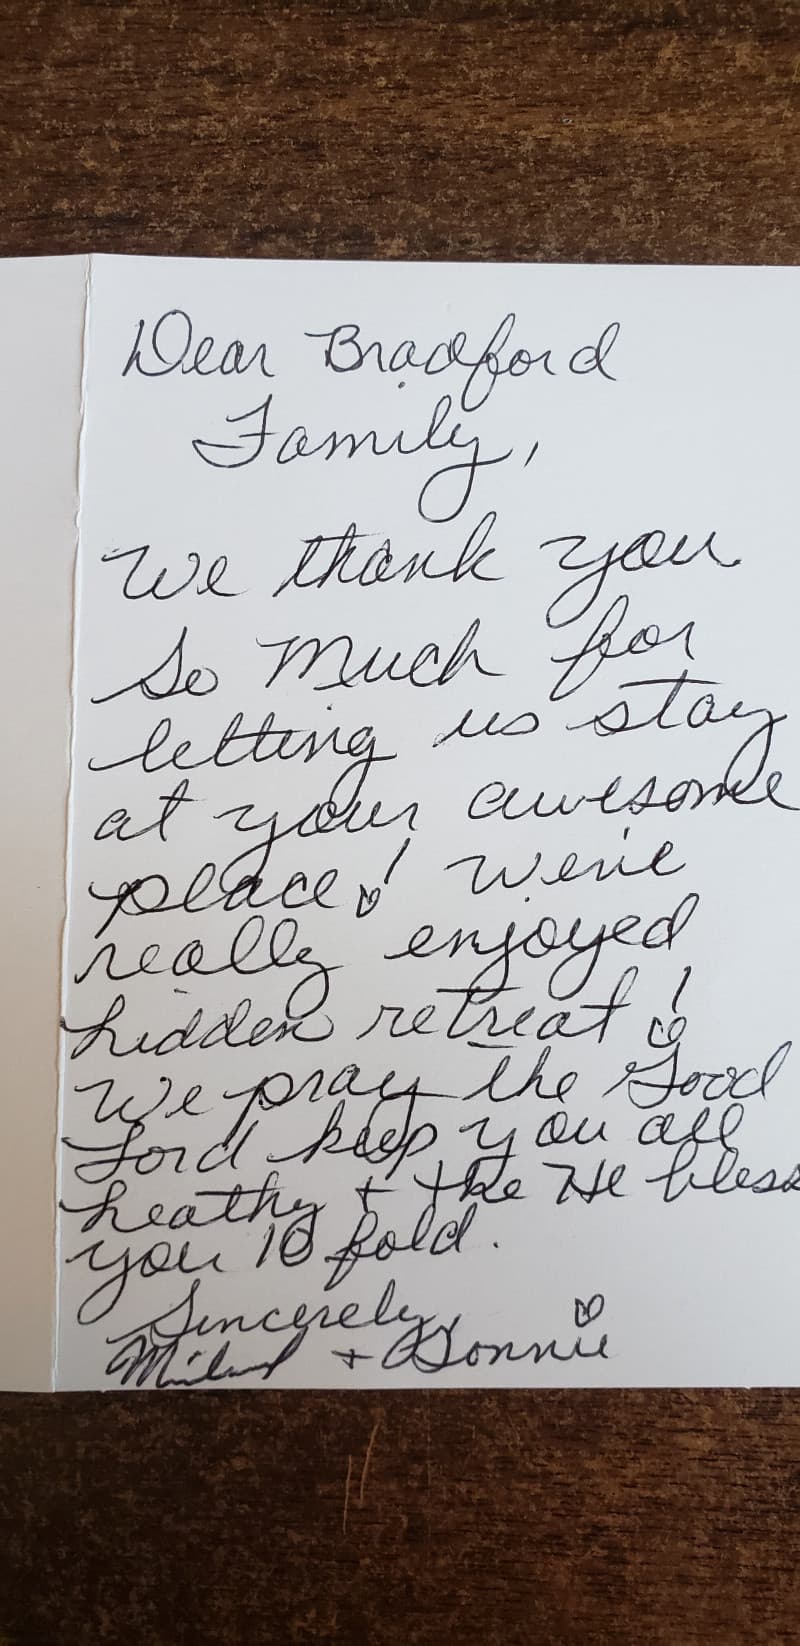 Dear Bradford
Family,
We thank you
so much for
letting us stay
at your awesome
place! We've
really enjoyed
hidden retreat!
We pray the Good
Lord keep you all
heathy + the He bless
you 10 fold.
Sincerely,
+ Bonnie